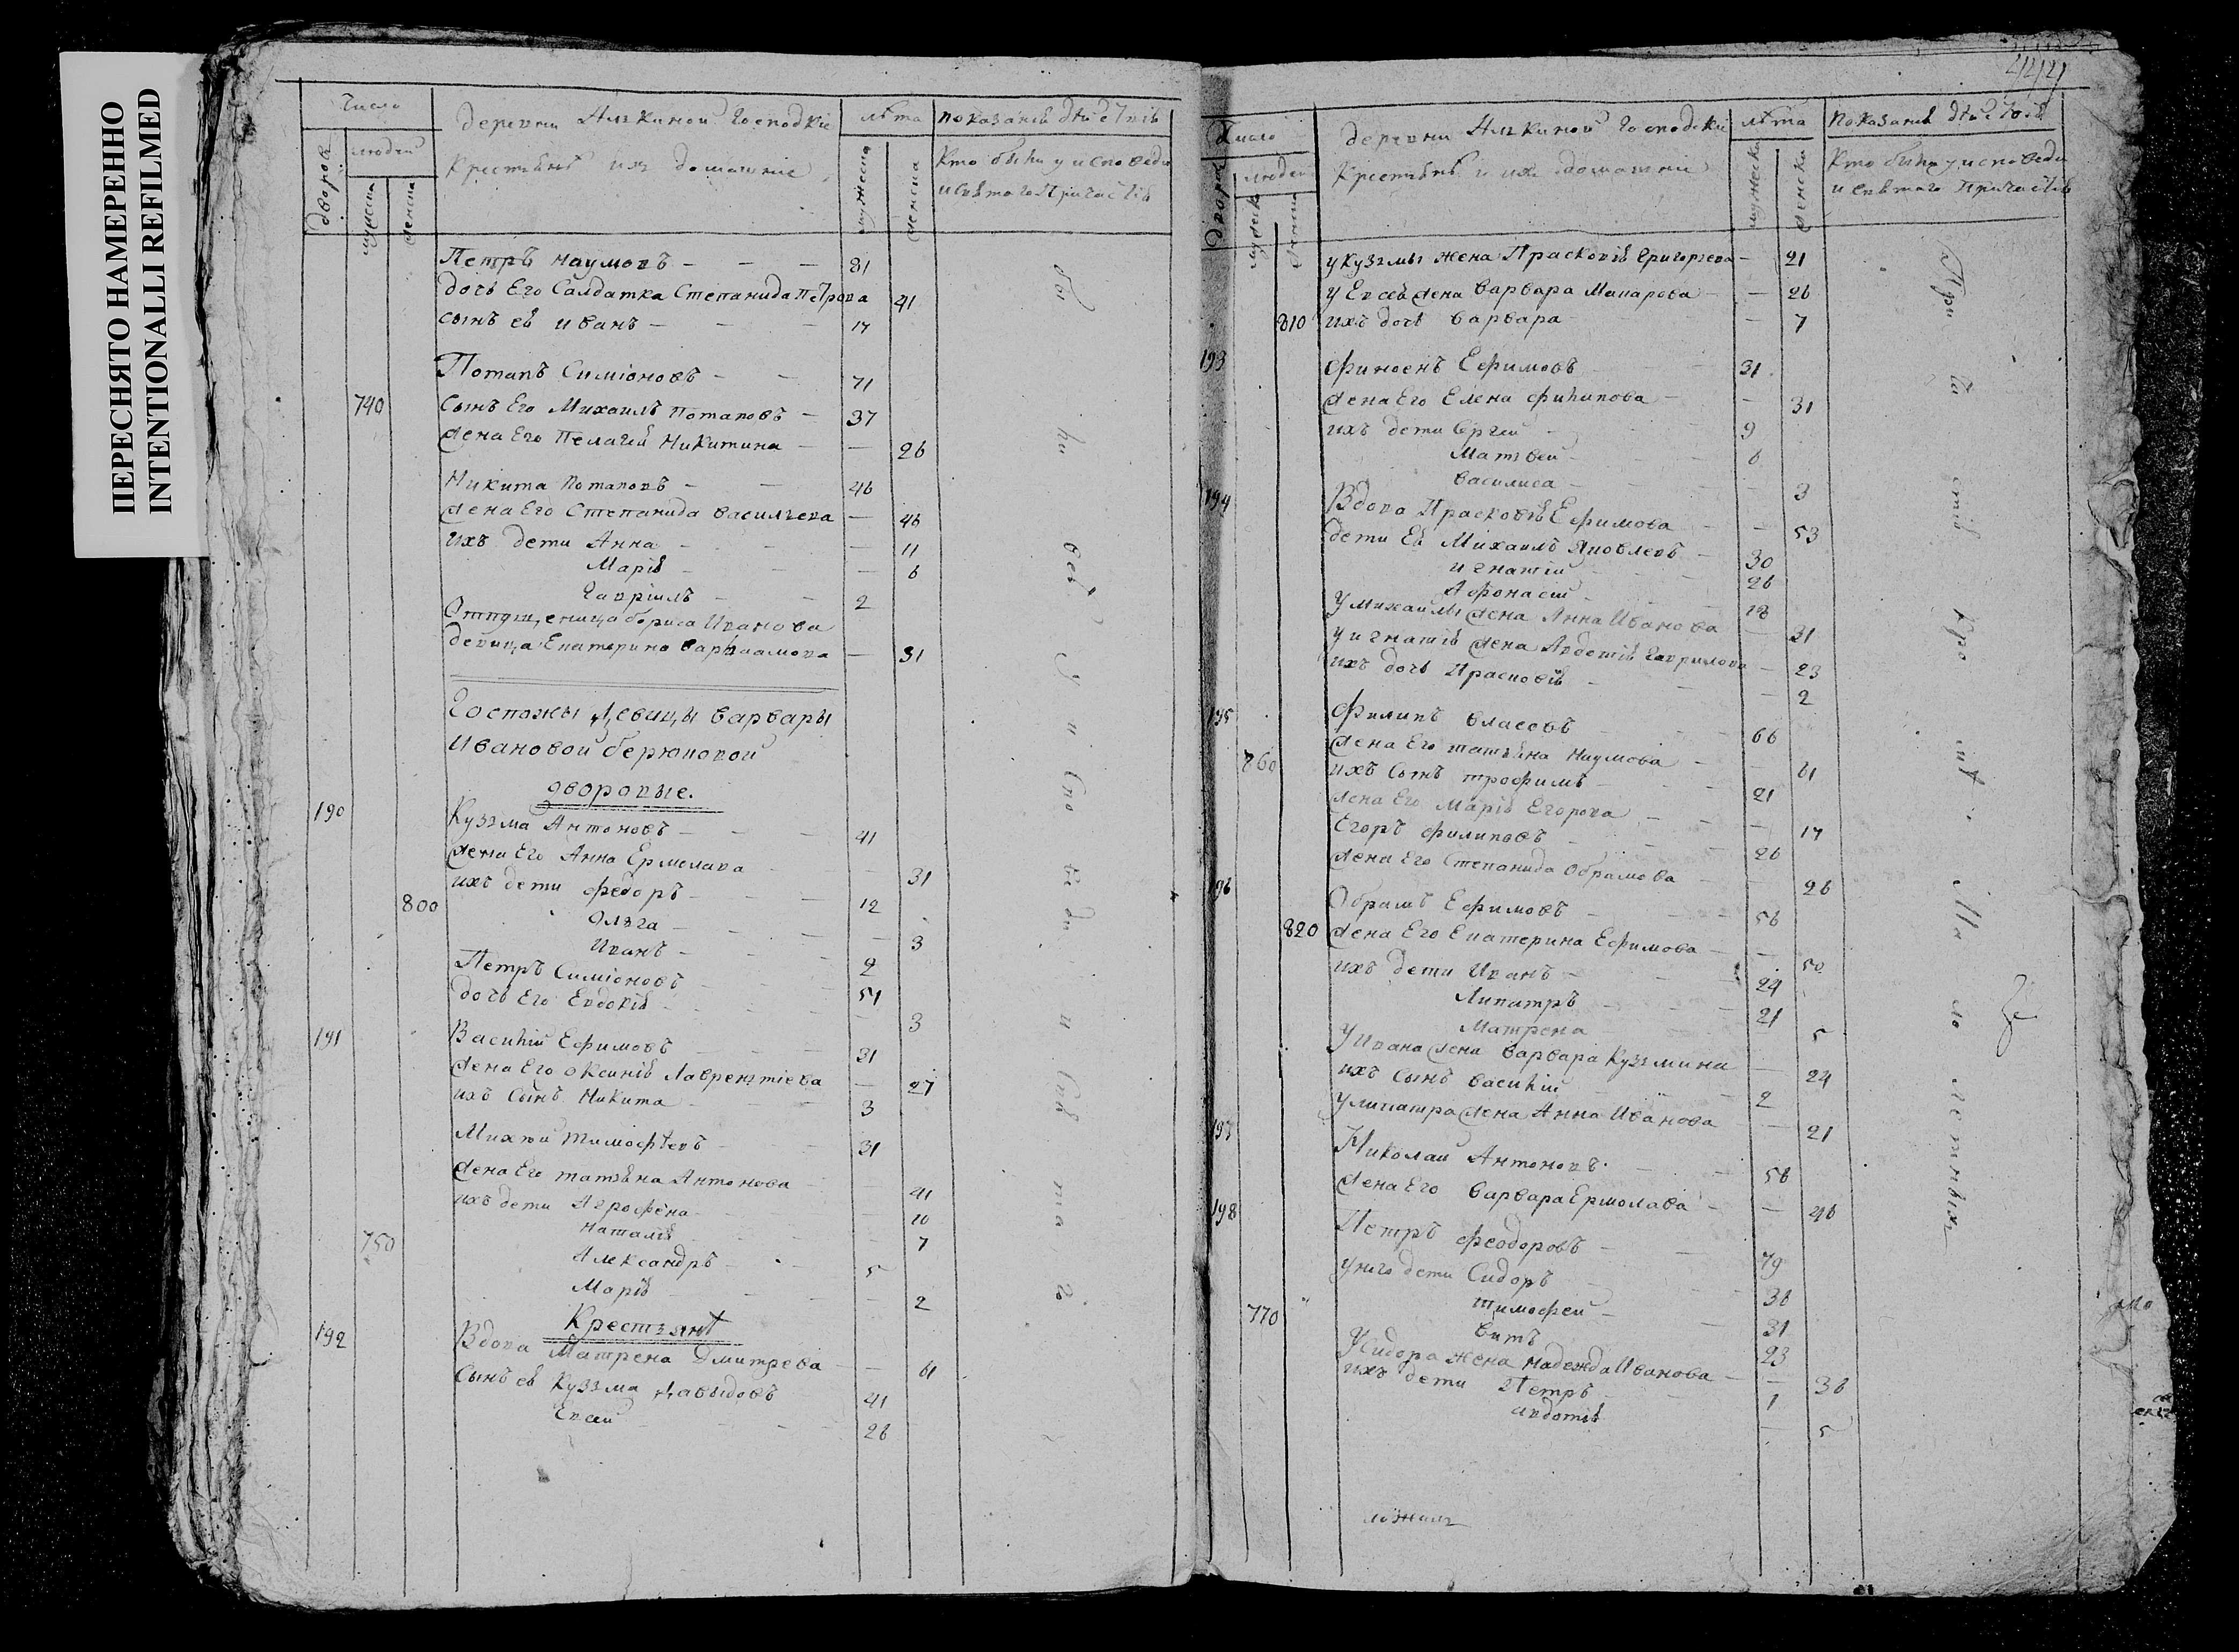 ПЕРЕСНЯТО НАМЕРЕННО
INTENTIONALLI REFILMED
Число
деревни Алькиной Господскіе
лѣта
показаніе дѣйствія
дворовъ
людей
Крестьянѣ ихъ домашніе
мужеска
женска
Кто были у исповеди
и святого причастія
мужеска
женска
Петръ наумовъ — 81
дочь Его Салдатка Степанида Петрова 41
сынъ ея иванъ — 17
Потапъ Симіоновъ — 71
740 Сынъ Его Михаилъ Потаповъ — 37
жена Его Пелагея Никитина — 26
Никита Потаповъ — 46
жена Его Степанида васильева — 46
ихъ дети Анна — 11
Марія — 6
Гавріилъ — 2
Отпущеница бориса Иванова
девица Екатерина варлаамова — 31
Госпожи Девицы варвары
Ивановой берюповой
дворовые.
190 Кузьма Антоновъ — 41
жена Его Анна Ермолава 31
ихъ дети федоръ — 12
800 Ольга — 3
Иванъ — 2
Петръ Симіоновъ 51
дочь Его Евдокія 3
191 Василій Ефимовъ 31
жена Его Оксинія Лаврентіева — 27
ихъ Сынъ Никита 3
Михей тимофѣевъ 31
жена Его татьяна Антонова 41
ихъ дети Агрофена 10
Наталія 7
750 Александръ — 5
Марія 2
Крестьянѣ
192 Вдова Матрена Дмитрева — 61
Сынъ ея Кузьма давыдовъ 41
Евсей 26
были у исповеди и святого
Число
деревни Алькиной Господскіе
лѣта
показаніе дѣйствія
дворовъ
людей
Крестьянѣ и ихъ домашніе
мужеска
женска
Кто были у исповеди
и святого причастія
мужеска
женска
у кузьмы жена Прасковія григорьева — 21
у Евсея жена варвара Макарова — 26
810 ихъ дочь варвара — 7
193 финоенъ Ефимовъ 31
жена Его Елена филипова — 31
ихъ дети Сергей 9
Матвей 6
василиса 3
194 Вдова Прасковія Ефимова 53
дети Ея Михаилъ Яковлевъ — 30
игнатій 26
Афонасей 18
у михаилы жена Анна Иванова 31
у игнатія жена Авдотія гаврилова — 23
ихъ дочь Прасковія 2
195 Филипъ власовъ 66
жена Его татьяна Наумова 61
760 ихъ сынъ трофимъ 21
жена Его Марія Егорова 17
Егоръ филиповъ 26
жена Его Степанида Обрамова 26
196 Обрамъ Ефимовъ 56
820 жена Его Екатерина Ефимова 50
ихъ дети Иванъ 24
Липатръ 21
Матрена 5
у Ивана жена варвара Кузьмина 24
ихъ сынъ василій 2
у липатра жена Анна Иванова 21
197 Николай Антоновъ 56
жена Его варвара Ермолава — 46
198 Петръ феодоровъ 79
у него дети Сидоръ 36
770 тимофей — 31
витъ 23
У Сидора жена надежда Иванова 36
ихъ дети Петръ 1
авдотія 5
Причастія кромѣ малолетныхъ